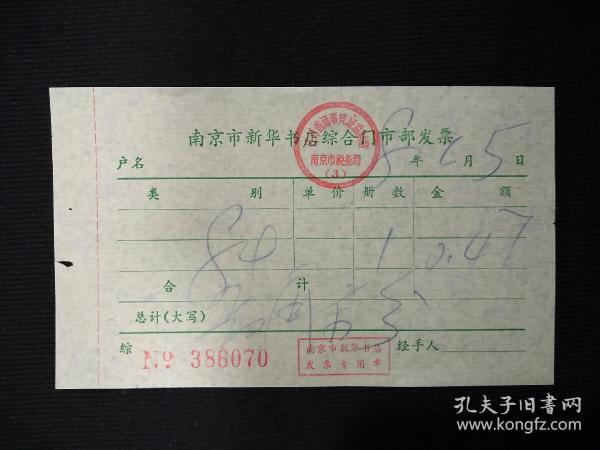 南京市新华书店综合门市部发票
南京市税务局
(3)
户名 年 月 5 日
类 别 单价 册数 金 额
84 1 0.47
合 计
总计(大写)
综 № 386070
南京市新华书店
发票专用章
经手人
孔夫子旧书网
www.kongfz.com